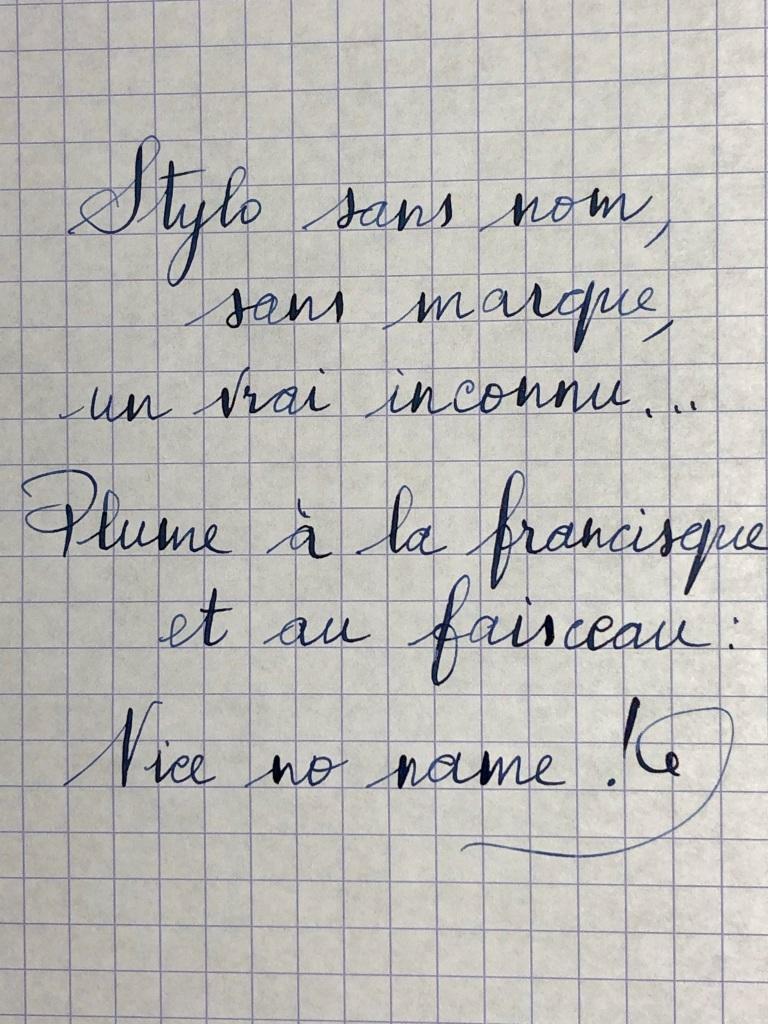 Stylo sans nom,
sans marque,
un vrai inconnu...
Plume à la francisque
et au faisceau :
Nice no name !